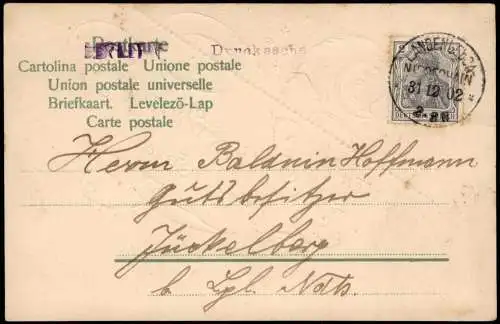 Postkarte
Drucksache
Cartolina postale Unione postale
Union postale universelle
Briefkaart. Levelező-Lap
Carte postale
LANGENCHURSDORF
31 12 02
DEUTSCHES REICH
Herrn Baldwin Hoffmann
Gutsbesitzer
Jückelberg
b. Lgl. Nds.